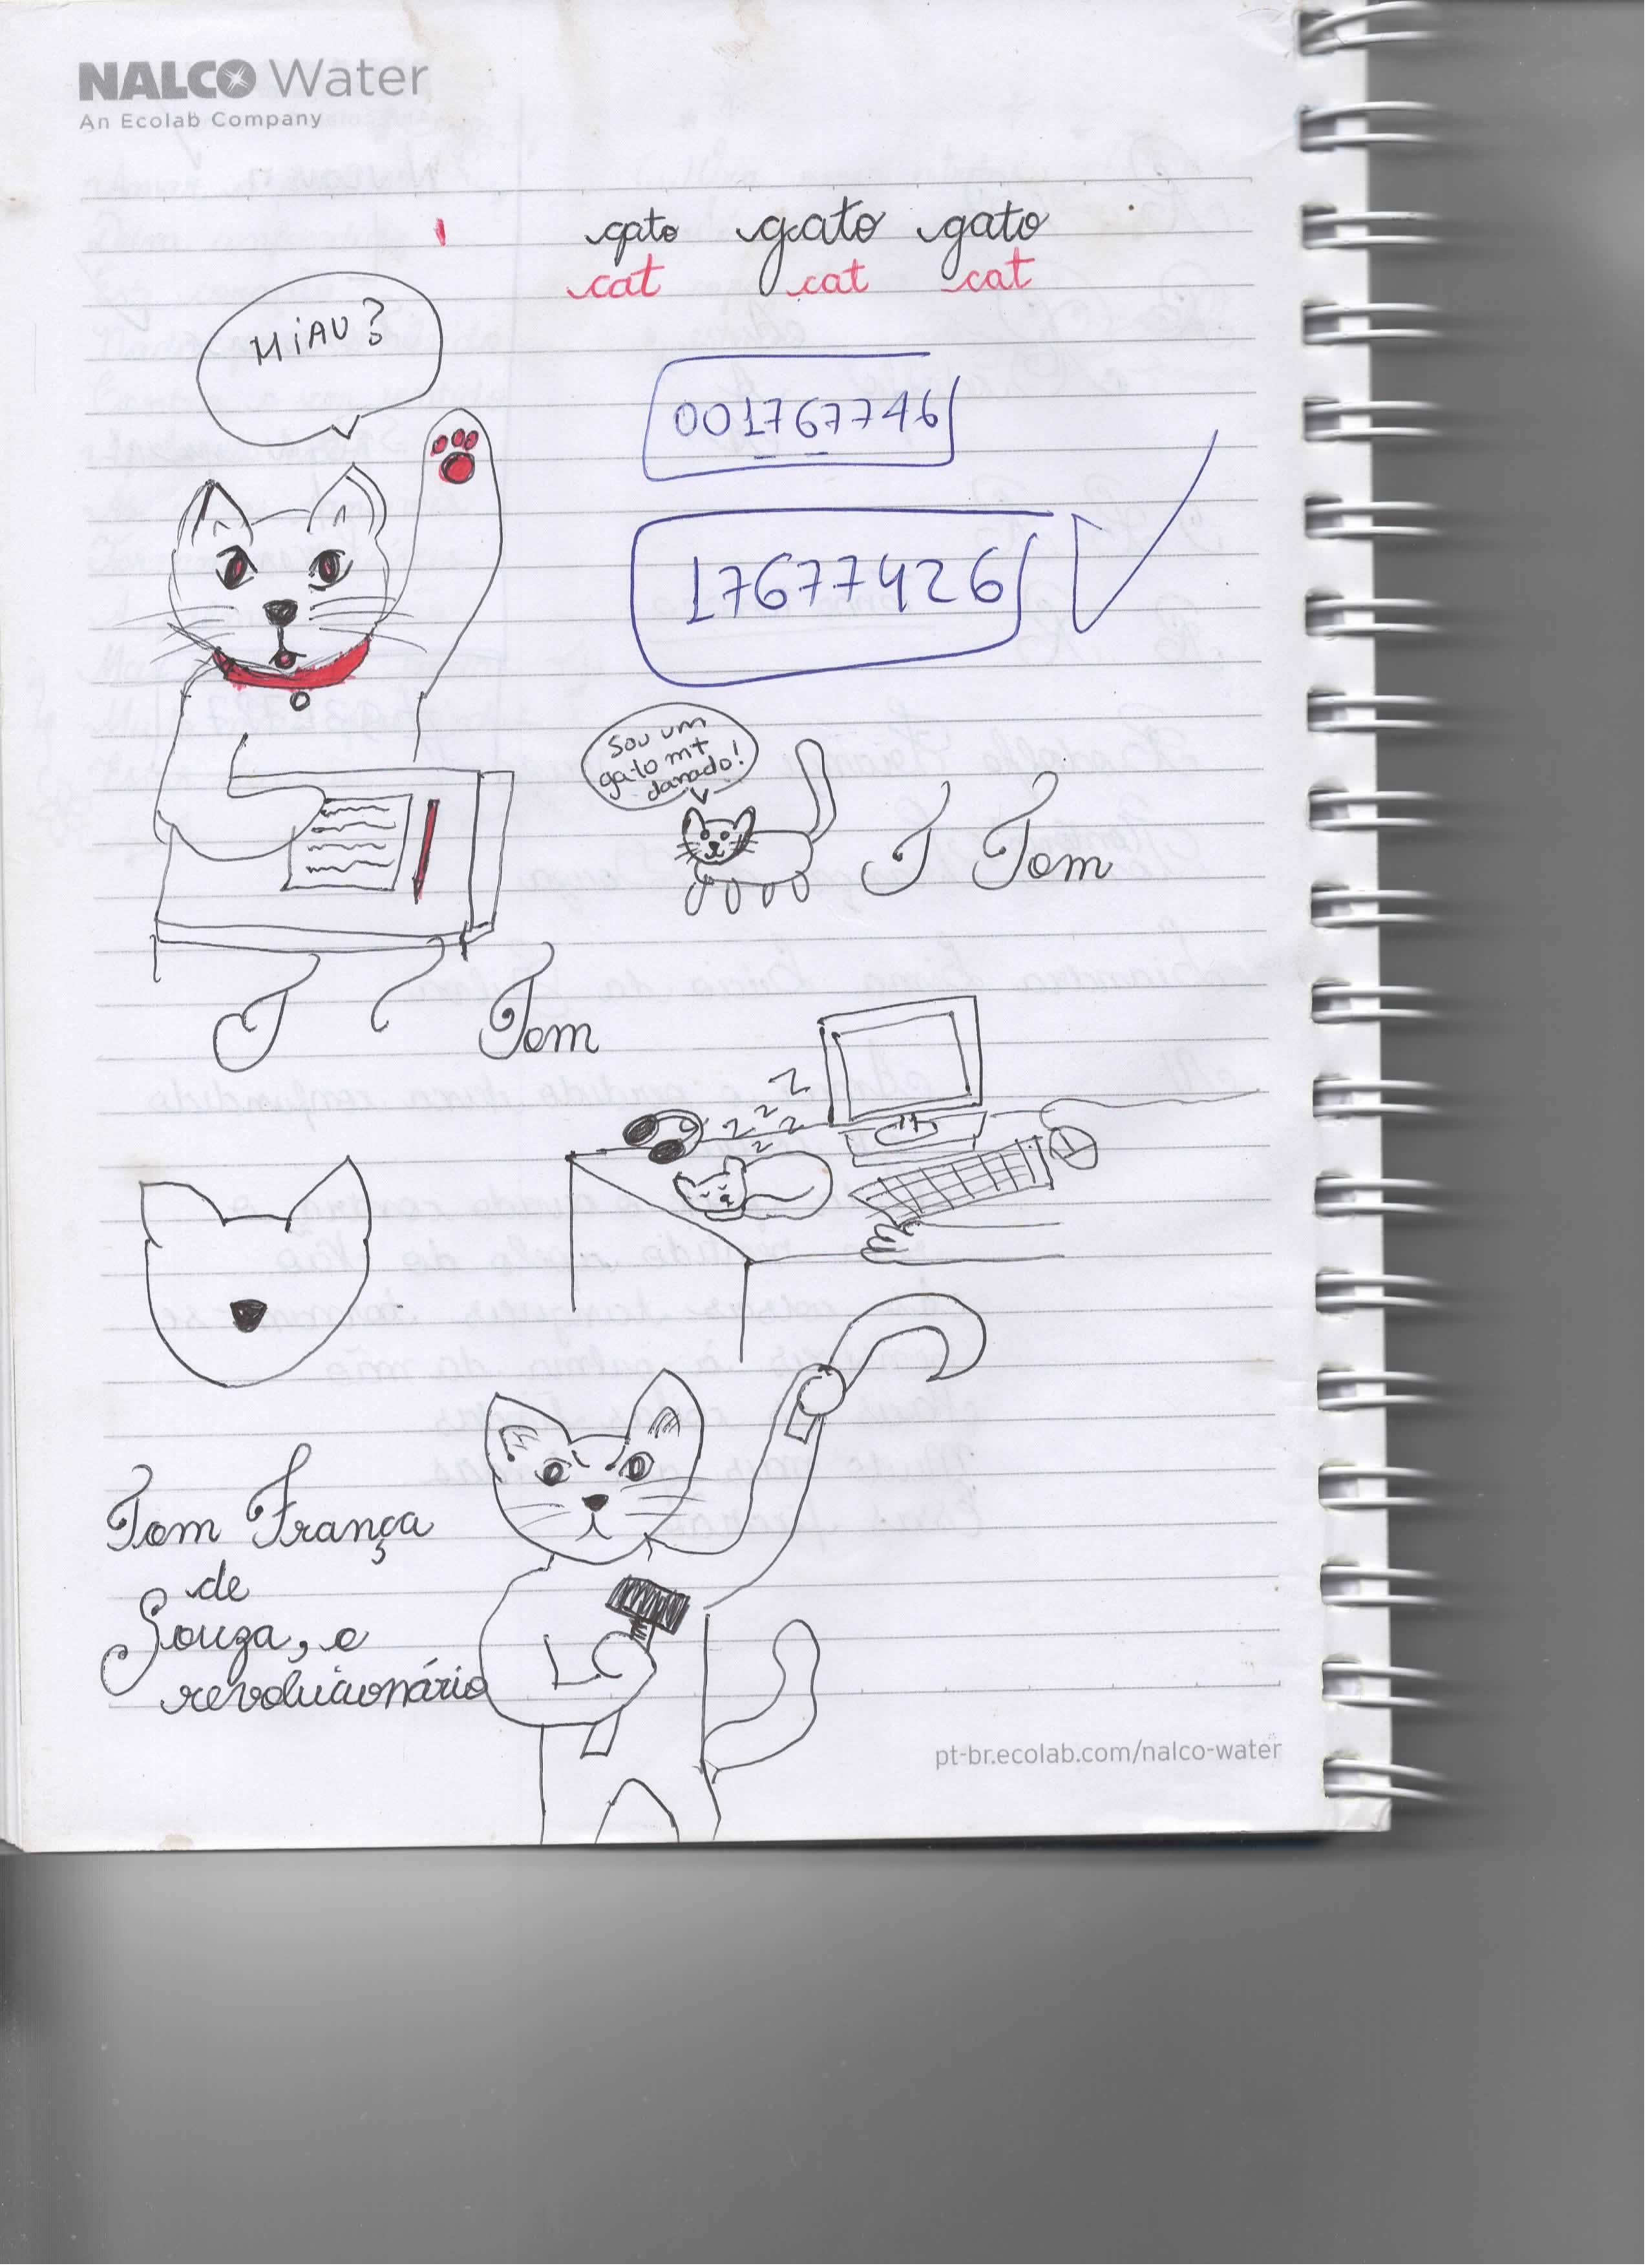 NALCO Water
An Ecolab Company
gato gato gato
cat cat cat
MiAU?
001767746
17677426
Sou um
gato mt
danado!
T Tom
T Tom
z z z z z
Tom França
de
Souza, o
revolucionário
pt-br.ecolab.com/nalco-water